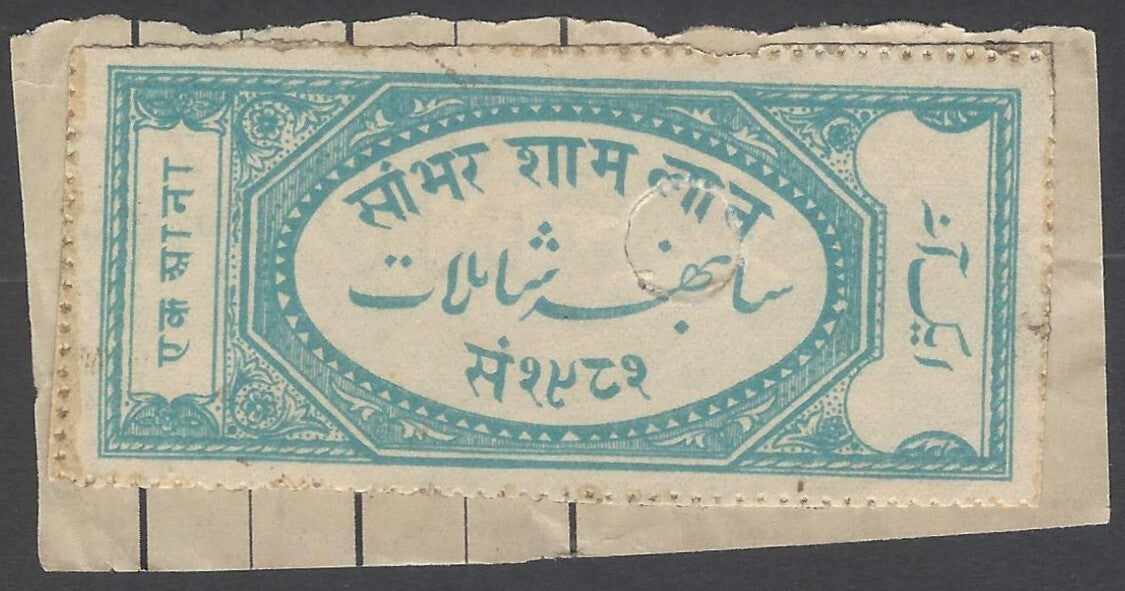 सांभर शाम लात
سانبھر شاملات
सं१९८१
एक आना
ایک آنہ